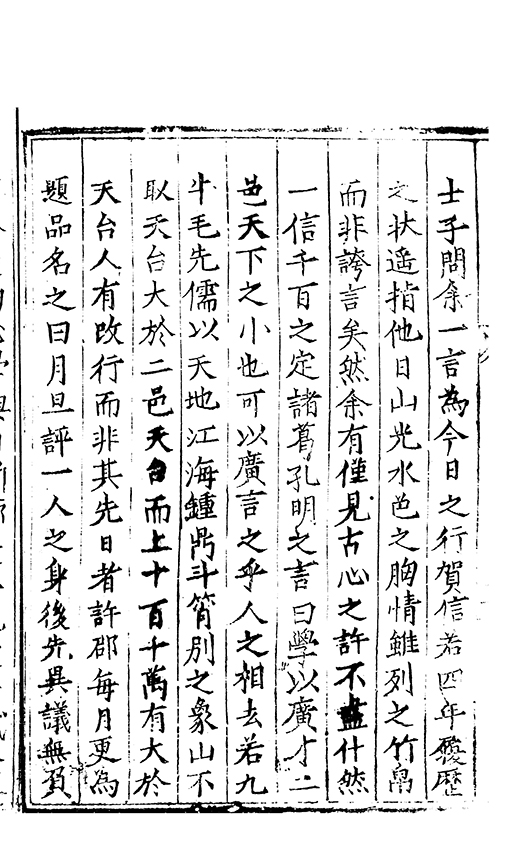 士子問余一言為今日之行賀信若四年履歷
之状遥指他日山光水色之胸情雖列之竹帛
而非誇言矣然余有僅見古心之許不盡什然
一信千百之定諸葛孔明之言曰學以廣才二
邑天下之小也可以廣言之乎人之相去若九
牛毛先儒以天地江海鍾鼎斗筲別之象山不
取天台大於二邑天台而上十百千萬有大於
天台人有改行而非其先日者許郡每月更為
題品名之曰月旦評一人之身後先異議無負